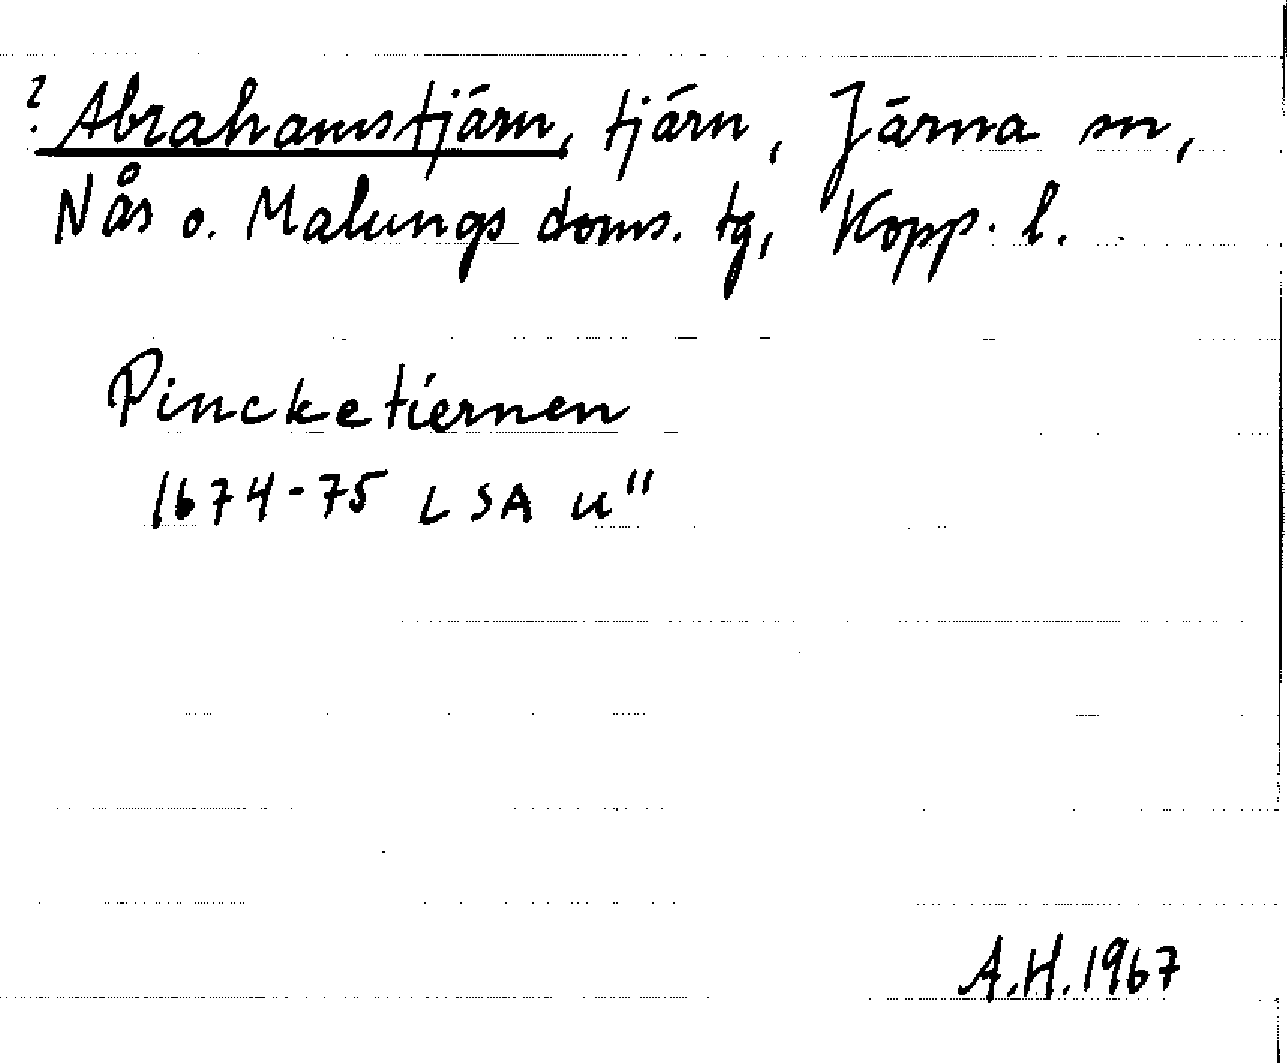 ? Abrahamstjärn, tjärn, Järna sn,
Nås o. Malungs doms. tg, Kopp. l.
Pincketiernen
1674-75 LSA u"
A.H. 1967